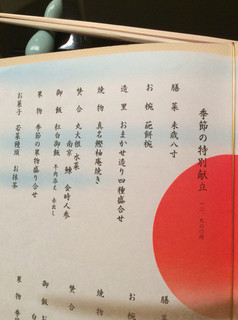 季節の特別献立
膳菜 未歳八寸
お椀 葩餅椀
造里 おまかせ造り四種盛合せ
焼物 真名鰹柚庵焼き
焚合 丸大根 水菜
南京 鰊 金時人参
御飯 紅白御飯
果物 季節の果物盛り合せ
お菓子 若菜種類 お抹茶
膳菜
お椀
造
焼物
焚合
御飯
果物